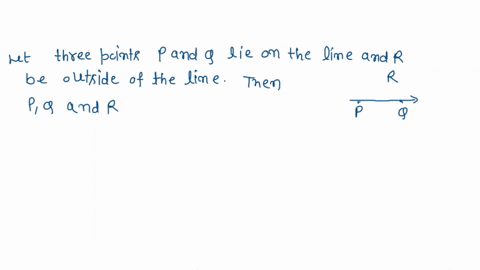 Let three points P and Q lie on the line and R
be outside of the line. Then
P, Q and R
R
P Q